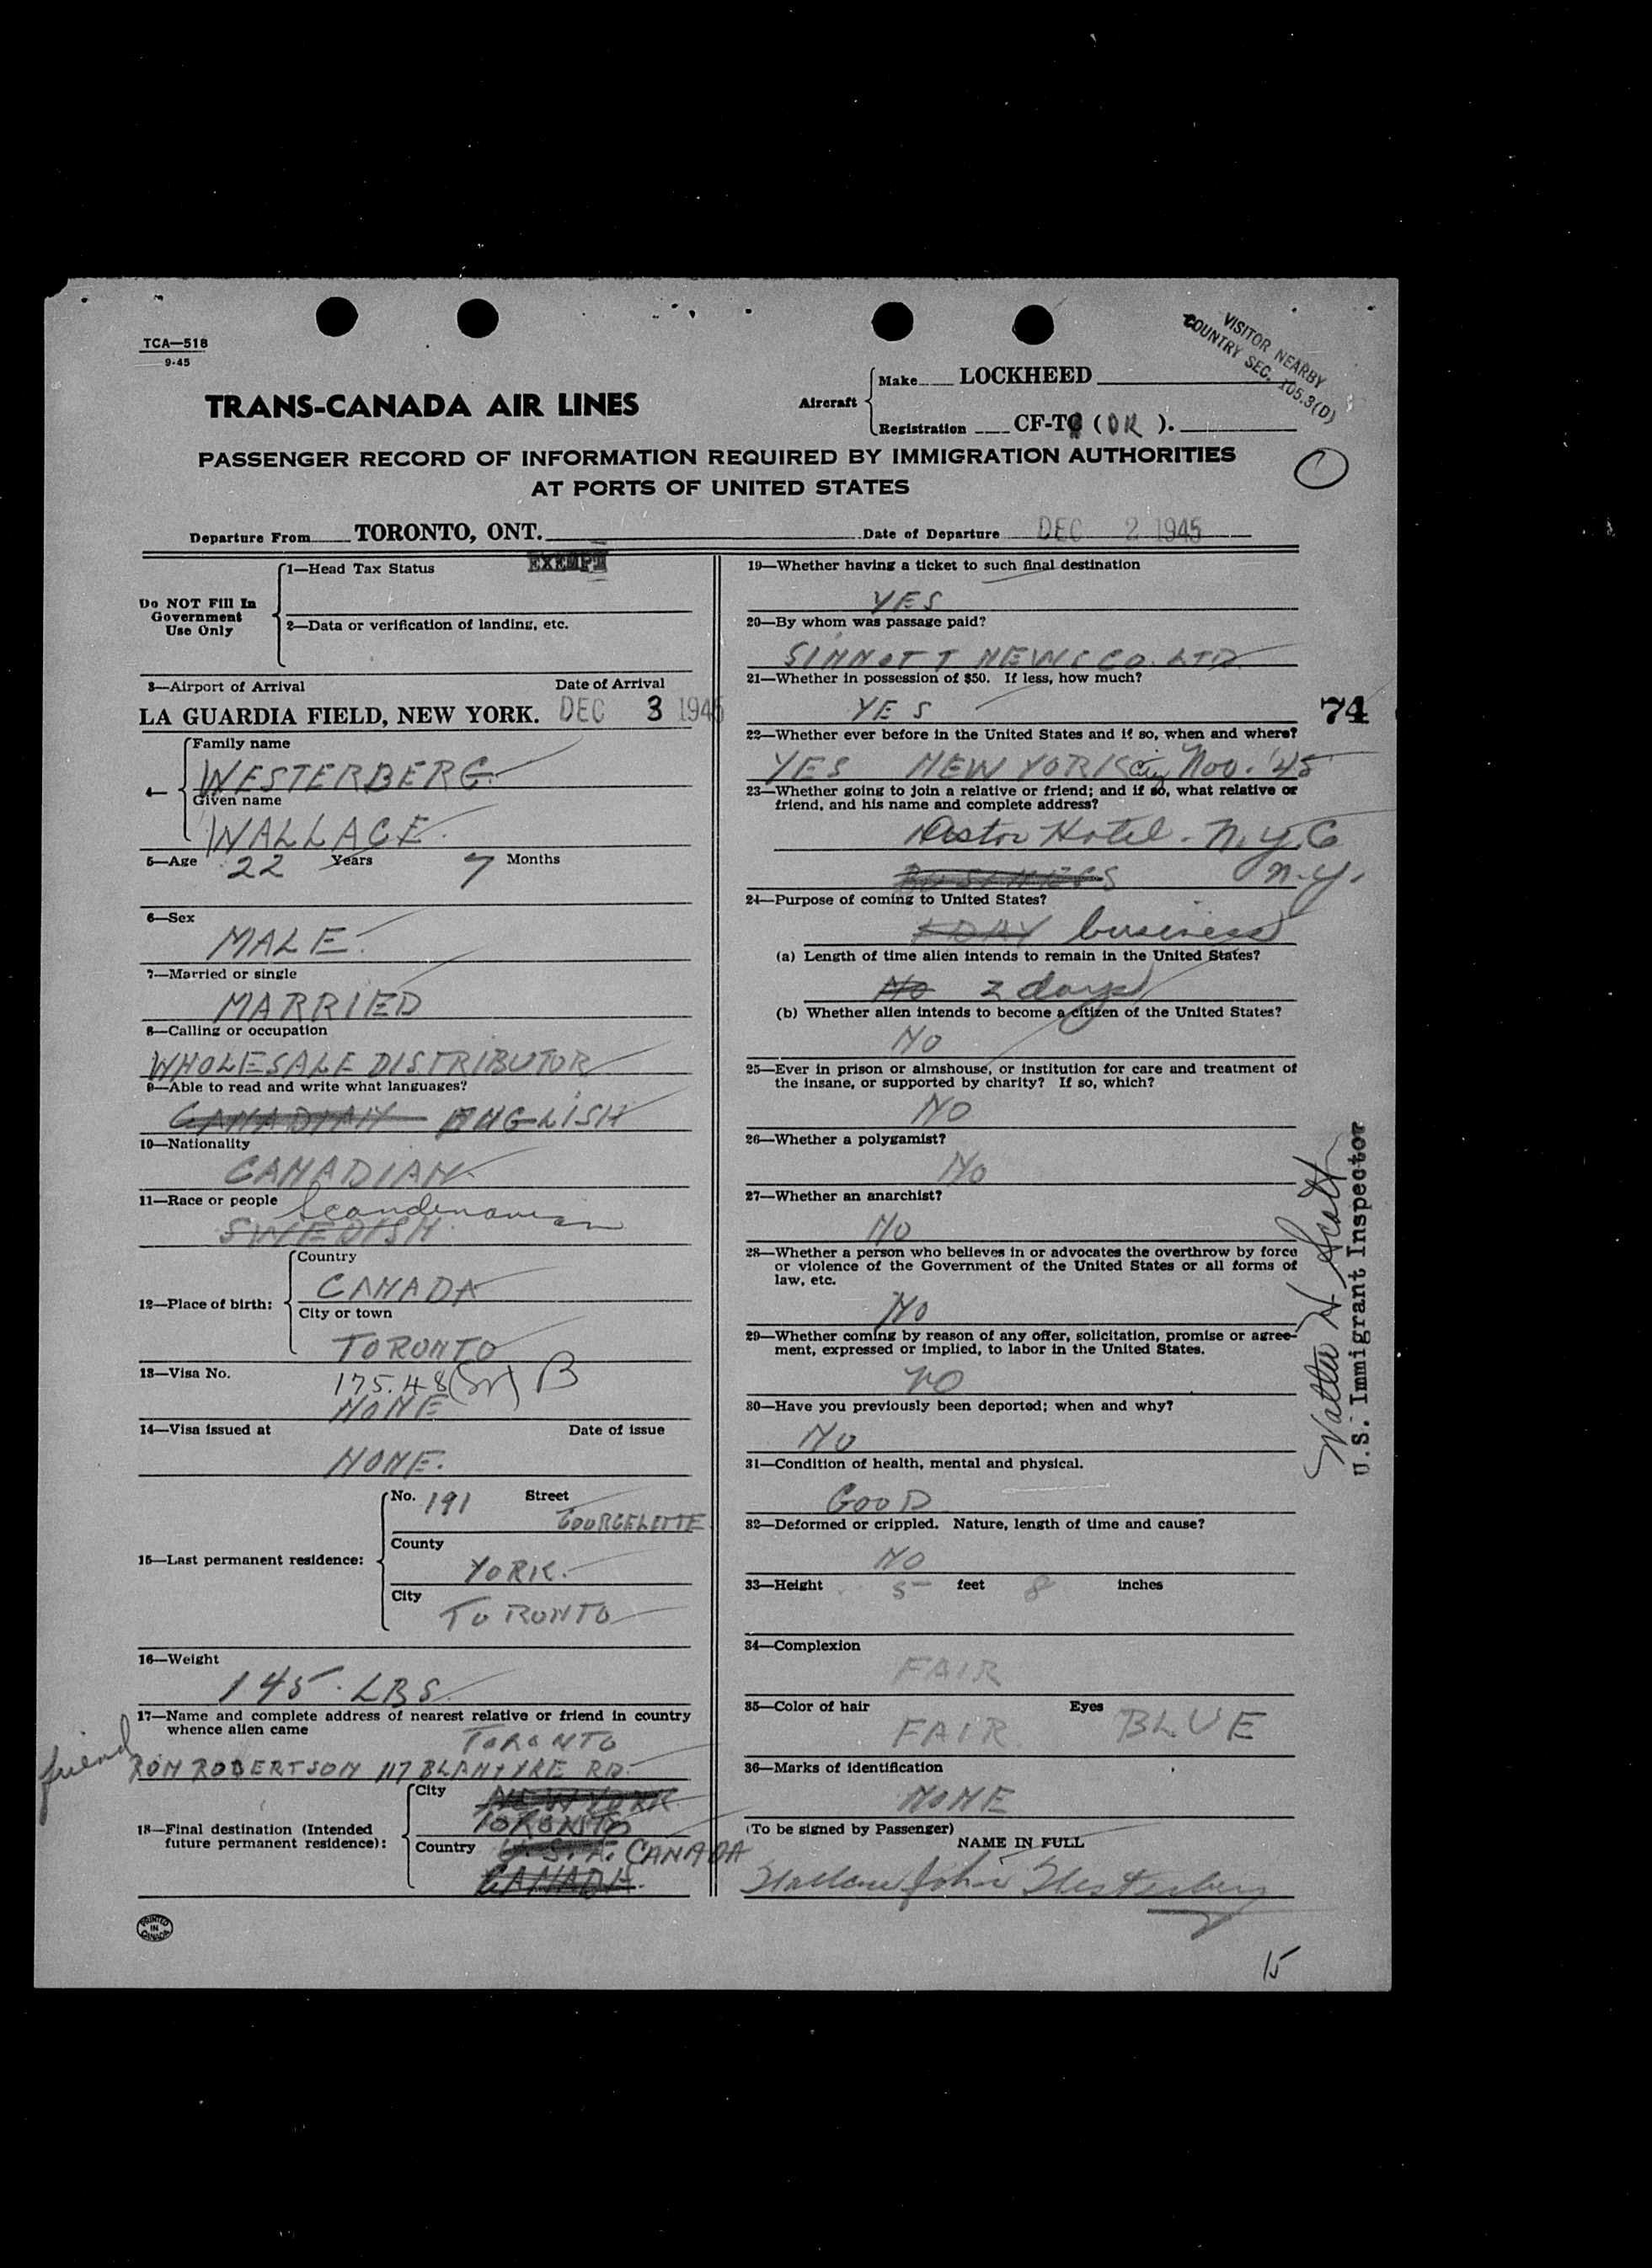 TCA—518
9-45
VISITOR NEARBY
COUNTRY SEC. 105.3(D)
TRANS-CANADA AIR LINES
Aircraft
Make LOCKHEED
Registration CF-TC (DR).
PASSENGER RECORD OF INFORMATION REQUIRED BY IMMIGRATION AUTHORITIES
AT PORTS OF UNITED STATES
Departure From TORONTO, ONT. Date of Departure DEC 2 1945
Do NOT Fill In
Government
Use Only
1—Head Tax Status EXEMPT
2—Data or verification of landing, etc.
3—Airport of Arrival Date of Arrival
LA GUARDIA FIELD, NEW YORK. DEC 3 1945
4—
Family name
WESTERBERG
Given name
WALLACE.
5—Age 22 Years 7 Months
6—Sex
MALE.
7—Married or single
MARRIED
8—Calling or occupation
WHOLESALE DISTRIBUTOR
9—Able to read and write what languages?
CANADIAN ENGLISH
10—Nationality
CANADIAN
11—Race or people Scandinavian
SWEDISH
12—Place of birth:
Country
CANADA
City or town
TORONTO
13—Visa No. 175.48 B
NONE
14—Visa issued at Date of issue
NONE.
15—Last permanent residence:
No. 191 Street
County
YORK.
City
TORONTO
16—Weight
145. LBS
17—Name and complete address of nearest relative or friend in country
whence alien came TORONTO
friend RON ROBERTSON 117 BLANTYRE RD.
18—Final destination (Intended
future permanent residence):
City NEW YORK
TORONTO
Country U.S.A. CANADA
CANADA.
PRINTED
IN
CANADA
19—Whether having a ticket to such final destination
YES
20—By whom was passage paid?
SINNOTT NEWS CO. LTD.
21—Whether in possession of $50. If less, how much?
YES
74
22—Whether ever before in the United States and if so, when and where?
YES NEW YORK City Nov. '45
23—Whether going to join a relative or friend; and if so, what relative or
friend, and his name and complete address?
Astor Hotel - N.Y.C
BUSINESS N.Y.
24—Purpose of coming to United States?
1 DAY business
(a) Length of time alien intends to remain in the United States?
NO 2 days
(b) Whether alien intends to become a citizen of the United States?
NO
25—Ever in prison or almshouse, or institution for care and treatment of
the insane, or supported by charity? If so, which?
NO
26—Whether a polygamist?
NO
27—Whether an anarchist?
NO
28—Whether a person who believes in or advocates the overthrow by force
or violence of the Government of the United States or all forms of
law, etc.
NO
29—Whether coming by reason of any offer, solicitation, promise or agree-
ment, expressed or implied, to labor in the United States.
NO
30—Have you previously been deported; when and why?
NO
31—Condition of health, mental and physical.
GOOD
32—Deformed or crippled. Nature, length of time and cause?
NO
33—Height 5 feet 8 inches
34—Complexion
FAIR
35—Color of hair Eyes
FAIR BLUE
36—Marks of identification
NONE
(To be signed by Passenger)
NAME IN FULL
Wallace John Westerberg
Walter H Scott
U.S. Immigrant Inspector
15